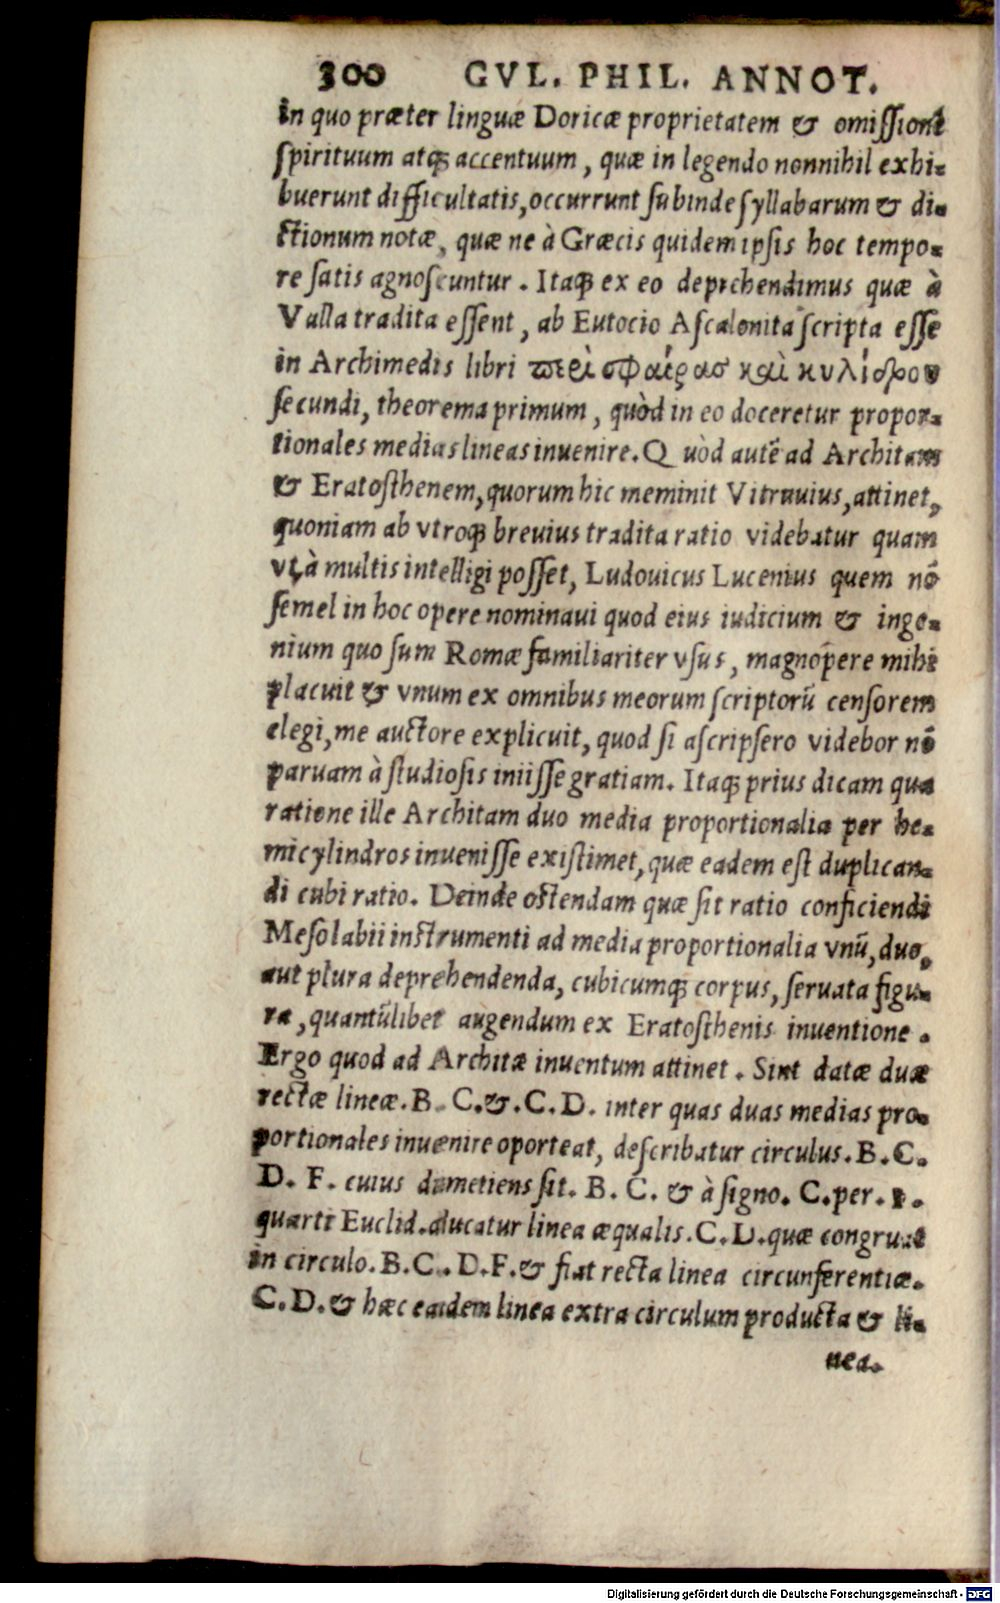 300 GVL. PHIL. ANNOT.
in quo præter linguæ Doricæ proprietatem & omißionẽ
spirituum atq; accentuum, quæ in legendo nonnihil exhi-
buerunt difficultatis, occurrunt subinde syllabarum & di-
ctionum notæ, quæ ne à Græcis quidem ipsis hoc tempo-
re satis agnoscuntur. Itaq; ex eo deprehendimus quæ à
Valla tradita essent, ab Eutocio Ascalonita scripta esse
in Archimedis libri περὶ σφαίρας καὶ κυλίνδρου
secundi, theorema primum, quòd in eo doceretur propor-
tionales medias lineas inuenire. Quòd autẽ ad Architam
& Eratosthenem, quorum hic meminit Vitruuius, attinet,
quoniam ab vtroq; breuius tradita ratio videbatur quam
vt à multis intelligi posset, Ludouicus Lucenius quem nõ
semel in hoc opere nominaui quod eius iudicium & inge-
nium quo sum Romæ familiariter vsus, magnopere mihi
placuit & vnum ex omnibus meorum scriptorũ censorem
elegi, me auctore explicuit, quod si ascripsero videbor nõ
paruam à studiosis iniisse gratiam. Itaq; prius dicam qua
ratione ille Architam duo media proportionalia per he-
micylindros inuenisse existimet, quæ eadem est duplican-
di cubi ratio. Deinde ostendam quæ sit ratio conficiendi
Mesolabii instrumenti ad media proportionalia vnũ, duo,
aut plura deprehendenda, cubicumq; corpus, seruata figu-
ra, quantũlibet augendum ex Eratosthenis inuentione.
Ergo quod ad Architæ inuentum attinet. Sint datæ duæ
rectæ lineæ. B. C. &. C. D. inter quas duas medias pro-
portionales inuenire oporteat, describatur circulus. B. C.
D. F. cuius dimetiens sit. B. C. & à signo. C. per. 1.
quarti Euclid. ducatur linea æqualis. C. D. quæ congruat
in circulo. B. C. D. F. & fiat recta linea circunferentiæ.
C. D. & hæc eadem linea extra circulum producta & li-
nea.
Digitalisierung gefördert durch die Deutsche Forschungsgemeinschaft - DFG